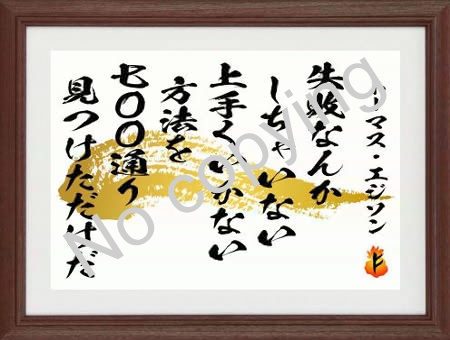 トーマス・エジソン
失敗なんか
しちゃいない
上手くいかない
方法を
七〇〇通り
見つけただけだ
No copying
F